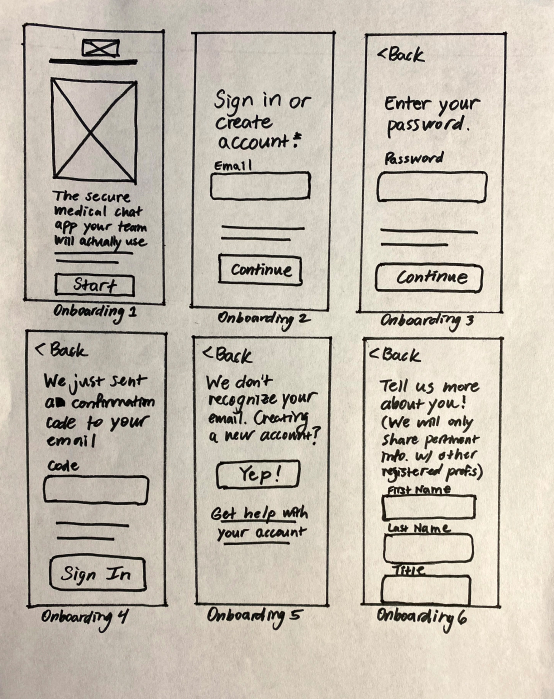 The secure
medical chat
app your team
will actually use
Start
Onboarding 1
Sign in or
create
account:*
Email
Continue
Onboarding 2
<Back
Enter your
password.
Password
Continue
Onboarding 3
<Back
We just sent
a confirmation
code to your
email
Code
Sign In
Onboarding 4
<Back
We don't
recognize your
email. Creating
a new account?
Yep!
Get help with
your account
Onboarding 5
<Back
Tell us more
about you!
(We will only
share pertinent
info. w/ other
registered profis)
First Name
Last Name
Title
Onboarding 6